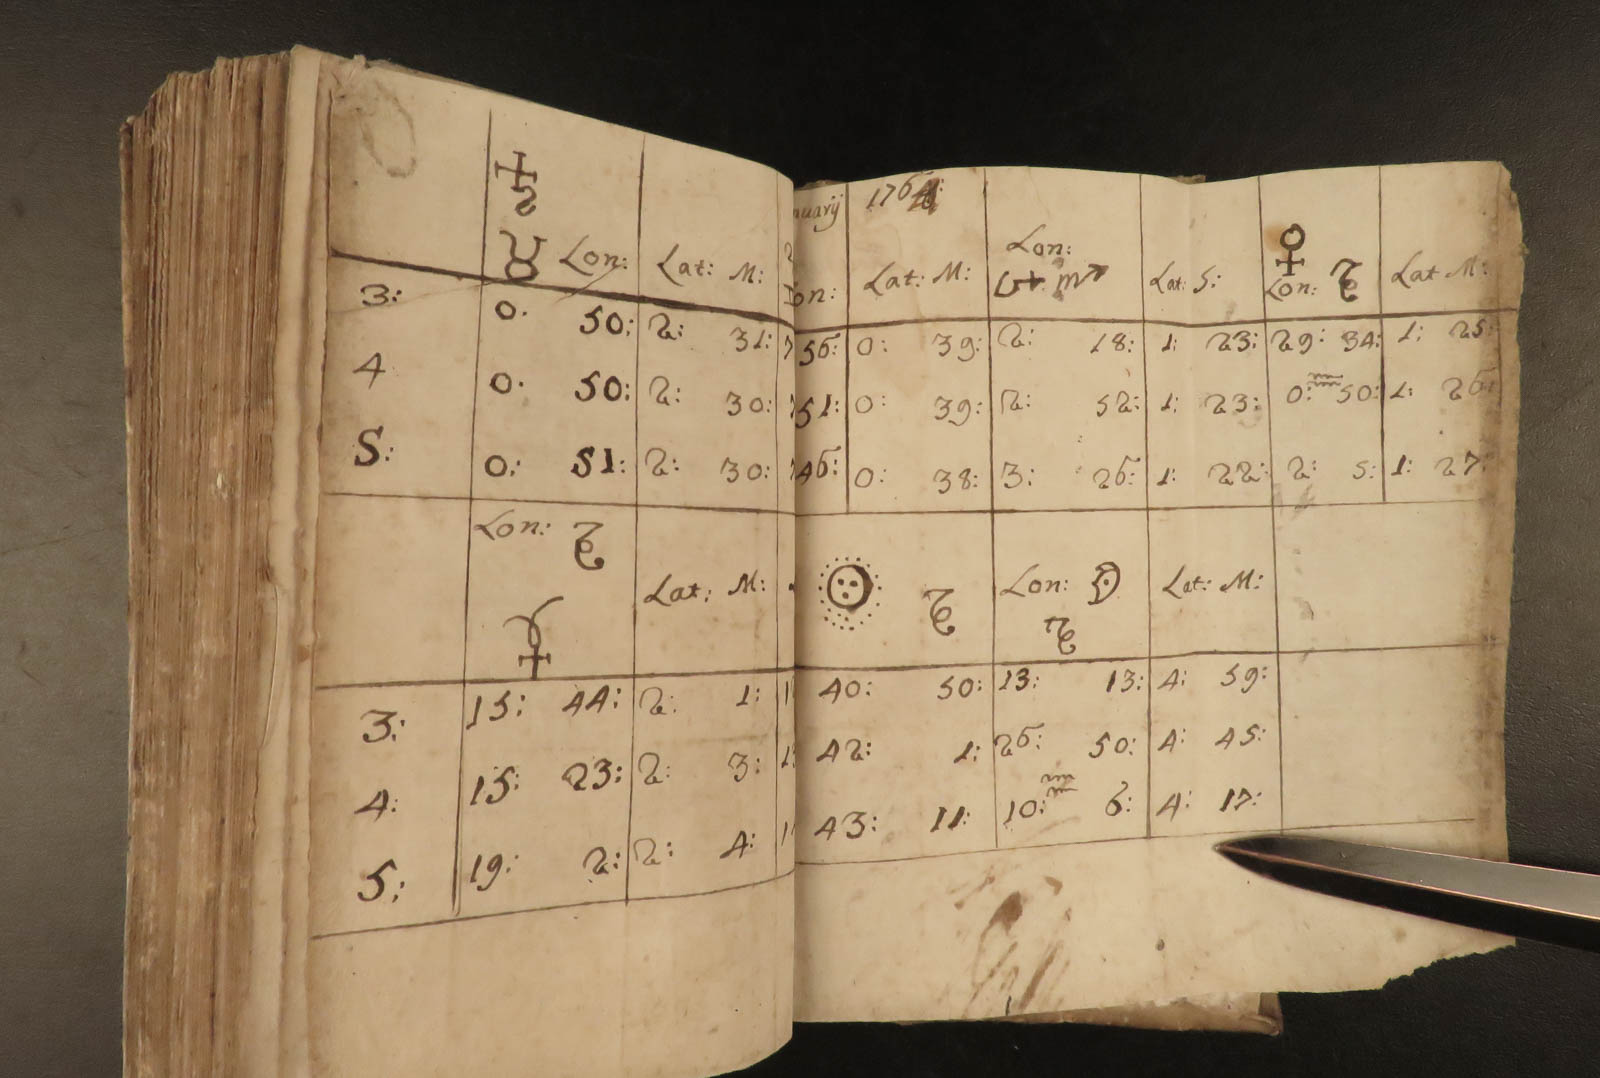 nuarij 176
♄ ♉ Lon: Lat: M: on: Lat: M: Lon: ♂ ♏ Lat: S: ♀ Lon: ♑ Lat M:
3: 0. 50: 2: 31: 56: 0: 39: 2: 18: 1: 23: 29: 34: 1: 25:
4 0. 50: 2: 30: 51: 0: 39: 2: 52: 1: 23: 0: ♒ 50: 1: 26:
5: 0: 51: 2: 30: 46: 0: 38: 3: 26: 1: 22: 2: 5: 1: 27:
Lon: ♑ ☿ Lat: M: ☉ ♑ Lon: ☽ ♑ Lat: M:
3: 15: 44: 2: 1: 40: 50: 13: 13: 4: 59:
4: 15: 23: 2: 3: 42: 1: 26: 50: 4: 45:
5: 19: 2: 2: 4: 43: 11: 10: ♒ 6: 4: 17: